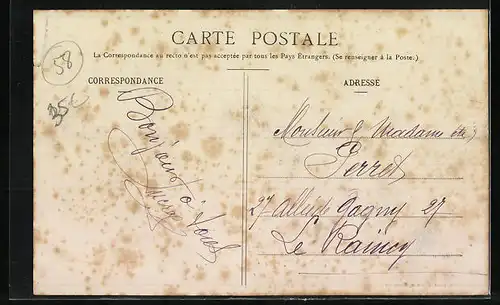 CARTE POSTALE
La Correspondance au recto n'est pas acceptée par tous les Pays Étrangers. (Se renseigner à la Poste.)
58
35€
CORRESPONDANCE
Bonjour à tous
ADRESSE
Monsieur & Madame
Perret
27 allée de Gagny 27
Le Raincy